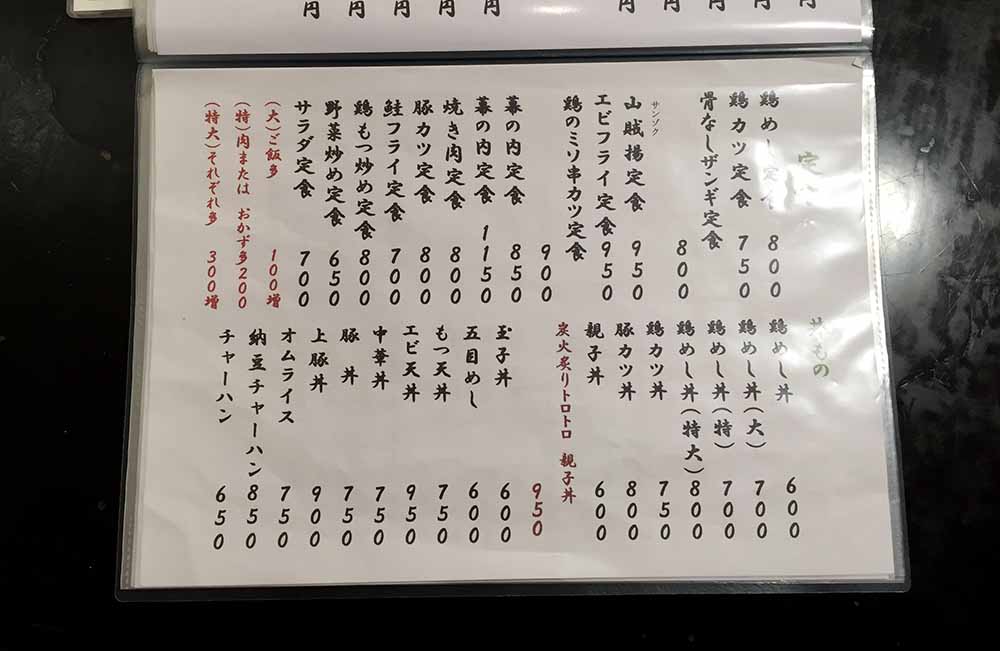 円
円
円
円
円
円
円
円
円
円
定
鶏めし定食 800
鶏カツ定食 750
骨なしザンギ定食 800
サンゾク
山賊揚定食 950
エビフライ定食 950
鶏のミソ串カツ定食 900
幕の内定食 850
幕の内定食 1150
焼き肉定食 800
豚カツ定食 800
鮭フライ定食 700
鶏もつ炒め定食 800
野菜炒め定食 650
サラダ定食 700
(大)ご飯多 100増
(特)肉または おかず多200
(特大)それぞれ多 300増
丼もの
鶏めし丼 600
鶏めし丼(大) 700
鶏めし丼(特) 700
鶏めし丼(特大) 800
鶏カツ丼 750
豚カツ丼 800
親子丼 600
炭火炙りトロトロ 親子丼 950
玉子丼 600
五目めし 600
もつ天丼 750
エビ天丼 950
中華丼 750
豚 丼 750
上豚丼 900
オムライス 750
納豆チャーハン 850
チャーハン 650